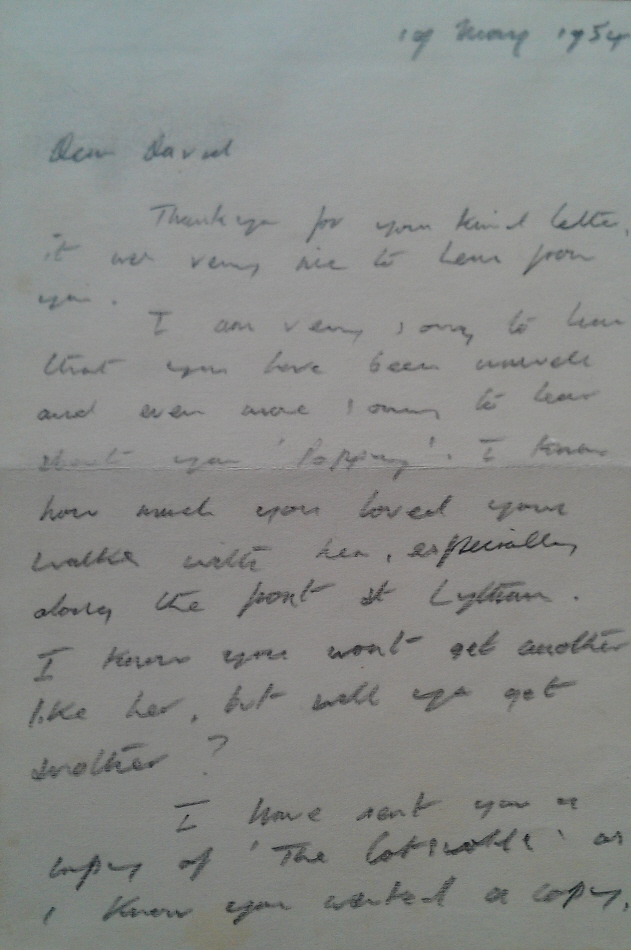 19 May 1954
Dear David
Thank you for your kind letter,
it was very nice to hear from
you.
I am very sorry to hear
that you have been unwell
and even more sorry to hear
about your 'Poppiny'. I know
how much you loved your
walks with her, especially
along the front at Lytham.
I know you wont get another
like her, but will you get
another ?
I have sent you a
copy of 'The Cotswolds' as
I know you wanted a copy,